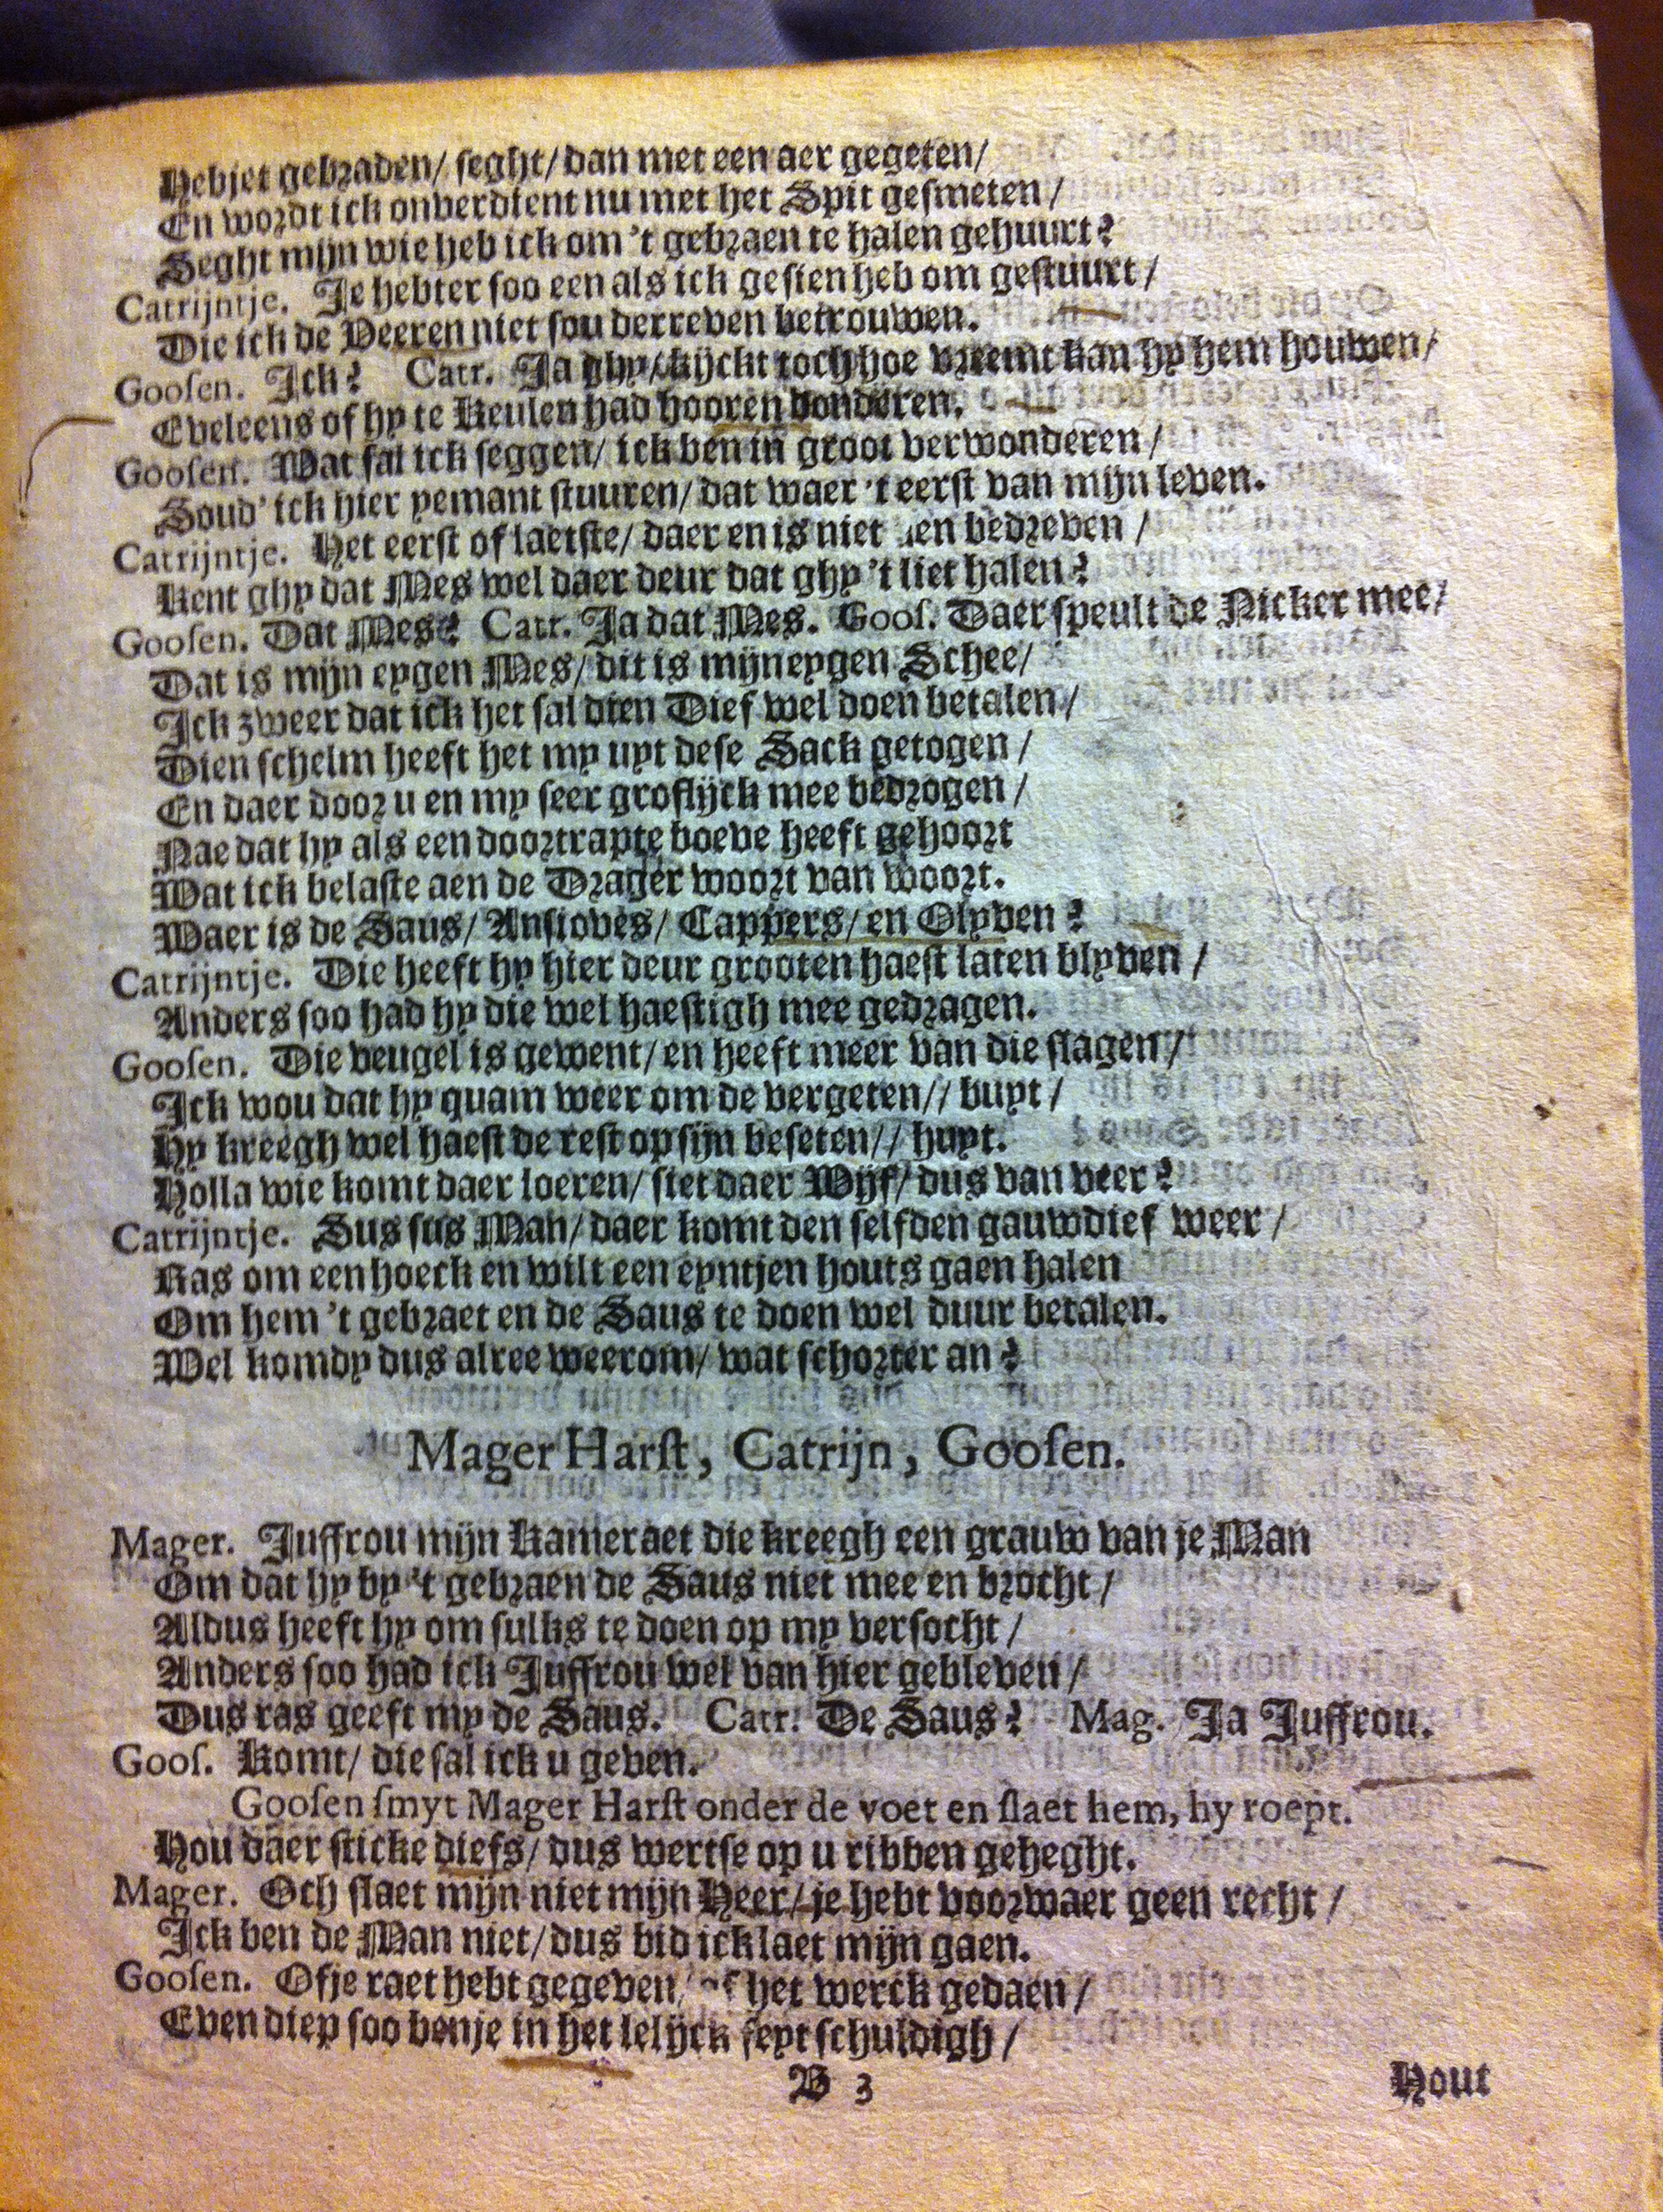 Hebjet gebraden/ seght/ dan met een aer gegeten/
En wordt ick onverdient nu met het Spit gesmeten/
Seght mijn wie heb ick om 't gebraen te halen gehuurt?
Catrijntje. Je hebter soo een als ick gesien heb om gestuurt/
Die ick de Veeren niet sou derreven betrouwen.
Goosen. Ick? Catr. Ja ghy/ kijckt toch hoe vreemt kan hy hem houwen/
Eveleens of hy te Keulen had hooren donderen.
Goosen. Wat sal ick seggen/ ick ben in groot verwonderen/
Soud' ick hier yemant stuuren/ dat waer 't eerst van mijn leven.
Catrijntje. Het eerst of laetste/ daer en is niet en bedreven/
Kent ghy dat Mes wel daer deur dat ghy 't liet halen?
Goosen. Dat Mes? Catr. Ja dat Mes. Goos. Daer speult de Nicker mee/
Dat is mijn eygen Mes/ dit is mijn eygen Schee/
Ick zweer dat ick het sal dien Dief wel doen betalen/
Dien schelm heeft het my uyt dese Sack getogen/
En daer door u en my seer groflijck mee bedrogen/
Nae dat hy als een doortrapte boeve heeft gehoort
Wat ick belaste aen de Drager woort van woort.
Waer is de Saus/ Ansioves/ Cappers/ en Olyven?
Catrijntje. Die heeft hy hier deur grooten haest laten blyven/
Anders soo had hy die wel haestigh mee gedragen.
Goosen. Die veugel is gewent/ en heeft meer van die slagen/
Ick wou dat hy quam weer om de vergeten// buyt/
Hy kreegh wel haest de rest op sijn beseten// huyt.
Holla wie komt daer loeren/ siet daer Wijf/ dus van veer?
Catrijntje. Sus sus Man/ daer komt den selfden gauwdief weer/
Ras om een hoeck en wilt een eyntjen houts gaen halen
Om hem 't gebraet en de Saus te doen wel duur betalen.
Wel komdy dus alree weerom/ wat schorter an?
Mager Harst, Catrijn, Goosen.
Mager. Juffrou mijn Kameraet die kreegh een grauw van je Man
Om dat hy by 't gebraen de Saus niet mee en brocht/
Aldus heeft hy om sulks te doen op my versocht/
Anders soo had ick Juffrou wel van hier gebleven/
Dus ras geeft my de Saus. Catr. De Saus? Mag. Ja Juffrou.
Goos. Komt/ die sal ick u geven.
Goosen smyt Mager Harst onder de voet en slaet hem, hy roept.
Hou daer sticke diefs/ dus wertse op u ribben geheght.
Mager. Och slaet mijn niet mijn Heer/ je hebt voorwaer geen recht/
Ick ben de Man niet/ dus bid ick laet mijn gaen.
Goosen. Ofje raet hebt gegeven/ of het werck gedaen/
Even diep soo benje in het lelijck feyt schuldigh/
B 3 Hout